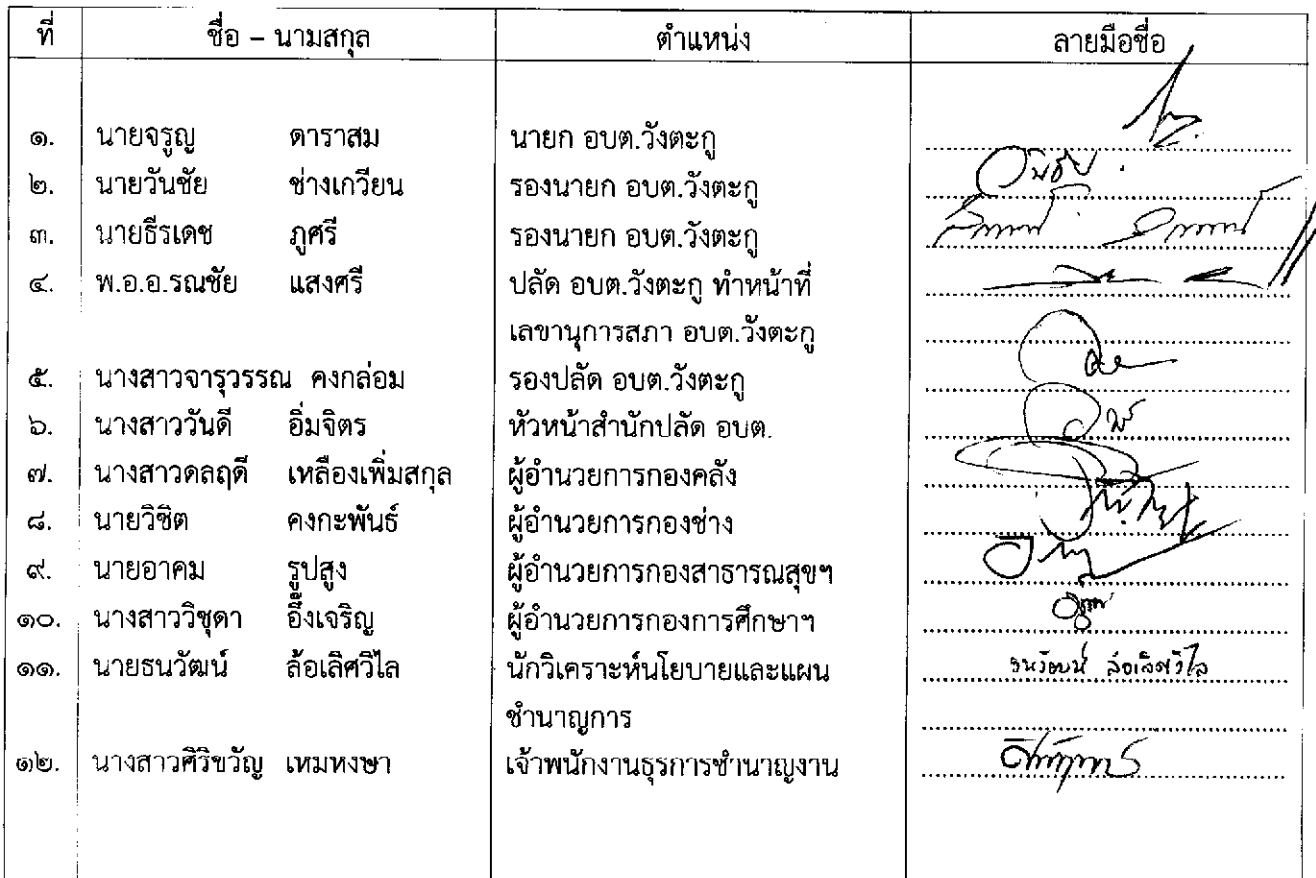 ที่ ชื่อ – นามสกุล ตำแหน่ง ลายมือชื่อ
๑. นายจรูญ ดาราสม นายก อบต.วังตะกู
๒. นายวันชัย ช่างเกวียน รองนายก อบต.วังตะกู วันชัย
๓. นายธีรเดช ภูศรี รองนายก อบต.วังตะกู
๔. พ.อ.อ.รณชัย แสงศรี ปลัด อบต.วังตะกู ทำหน้าที่
เลขานุการสภา อบต.วังตะกู
๕. นางสาวจารุวรรณ คงกล่อม รองปลัด อบต.วังตะกู
๖. นางสาววันดี อิ่มจิตร หัวหน้าสำนักปลัด อบต.
๗. นางสาวดลฤดี เหลืองเพิ่มสกุล ผู้อำนวยการกองคลัง
๘. นายวิชิต คงกะพันธ์ ผู้อำนวยการกองช่าง
๙. นายอาคม รูปสูง ผู้อำนวยการกองสาธารณสุขฯ
๑๐. นางสาววิชุดา อึ๊งเจริญ ผู้อำนวยการกองการศึกษาฯ
๑๑. นายธนวัฒน์ ล้อเลิศวิไล นักวิเคราะห์นโยบายและแผน ธนวัฒน์ ล้อเลิศวิไล
ชำนาญการ
๑๒. นางสาวศิริขวัญ เหมหงษา เจ้าพนักงานธุรการชำนาญงาน